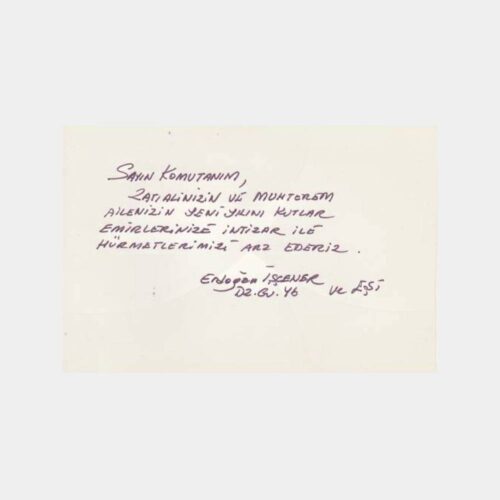 SAYIN KOMUTANIM,
ZATIALİNİZİN VE MUHTEREM
AİLENİZİN YENİ YILINI KUTLAR
EMİRLERİNİZE İNTİZAR İLE
HÜRMETLERİMİZİ ARZ EDERİZ.
Erdoğan İŞCENER
DZ.GV.Yb ve EŞİ